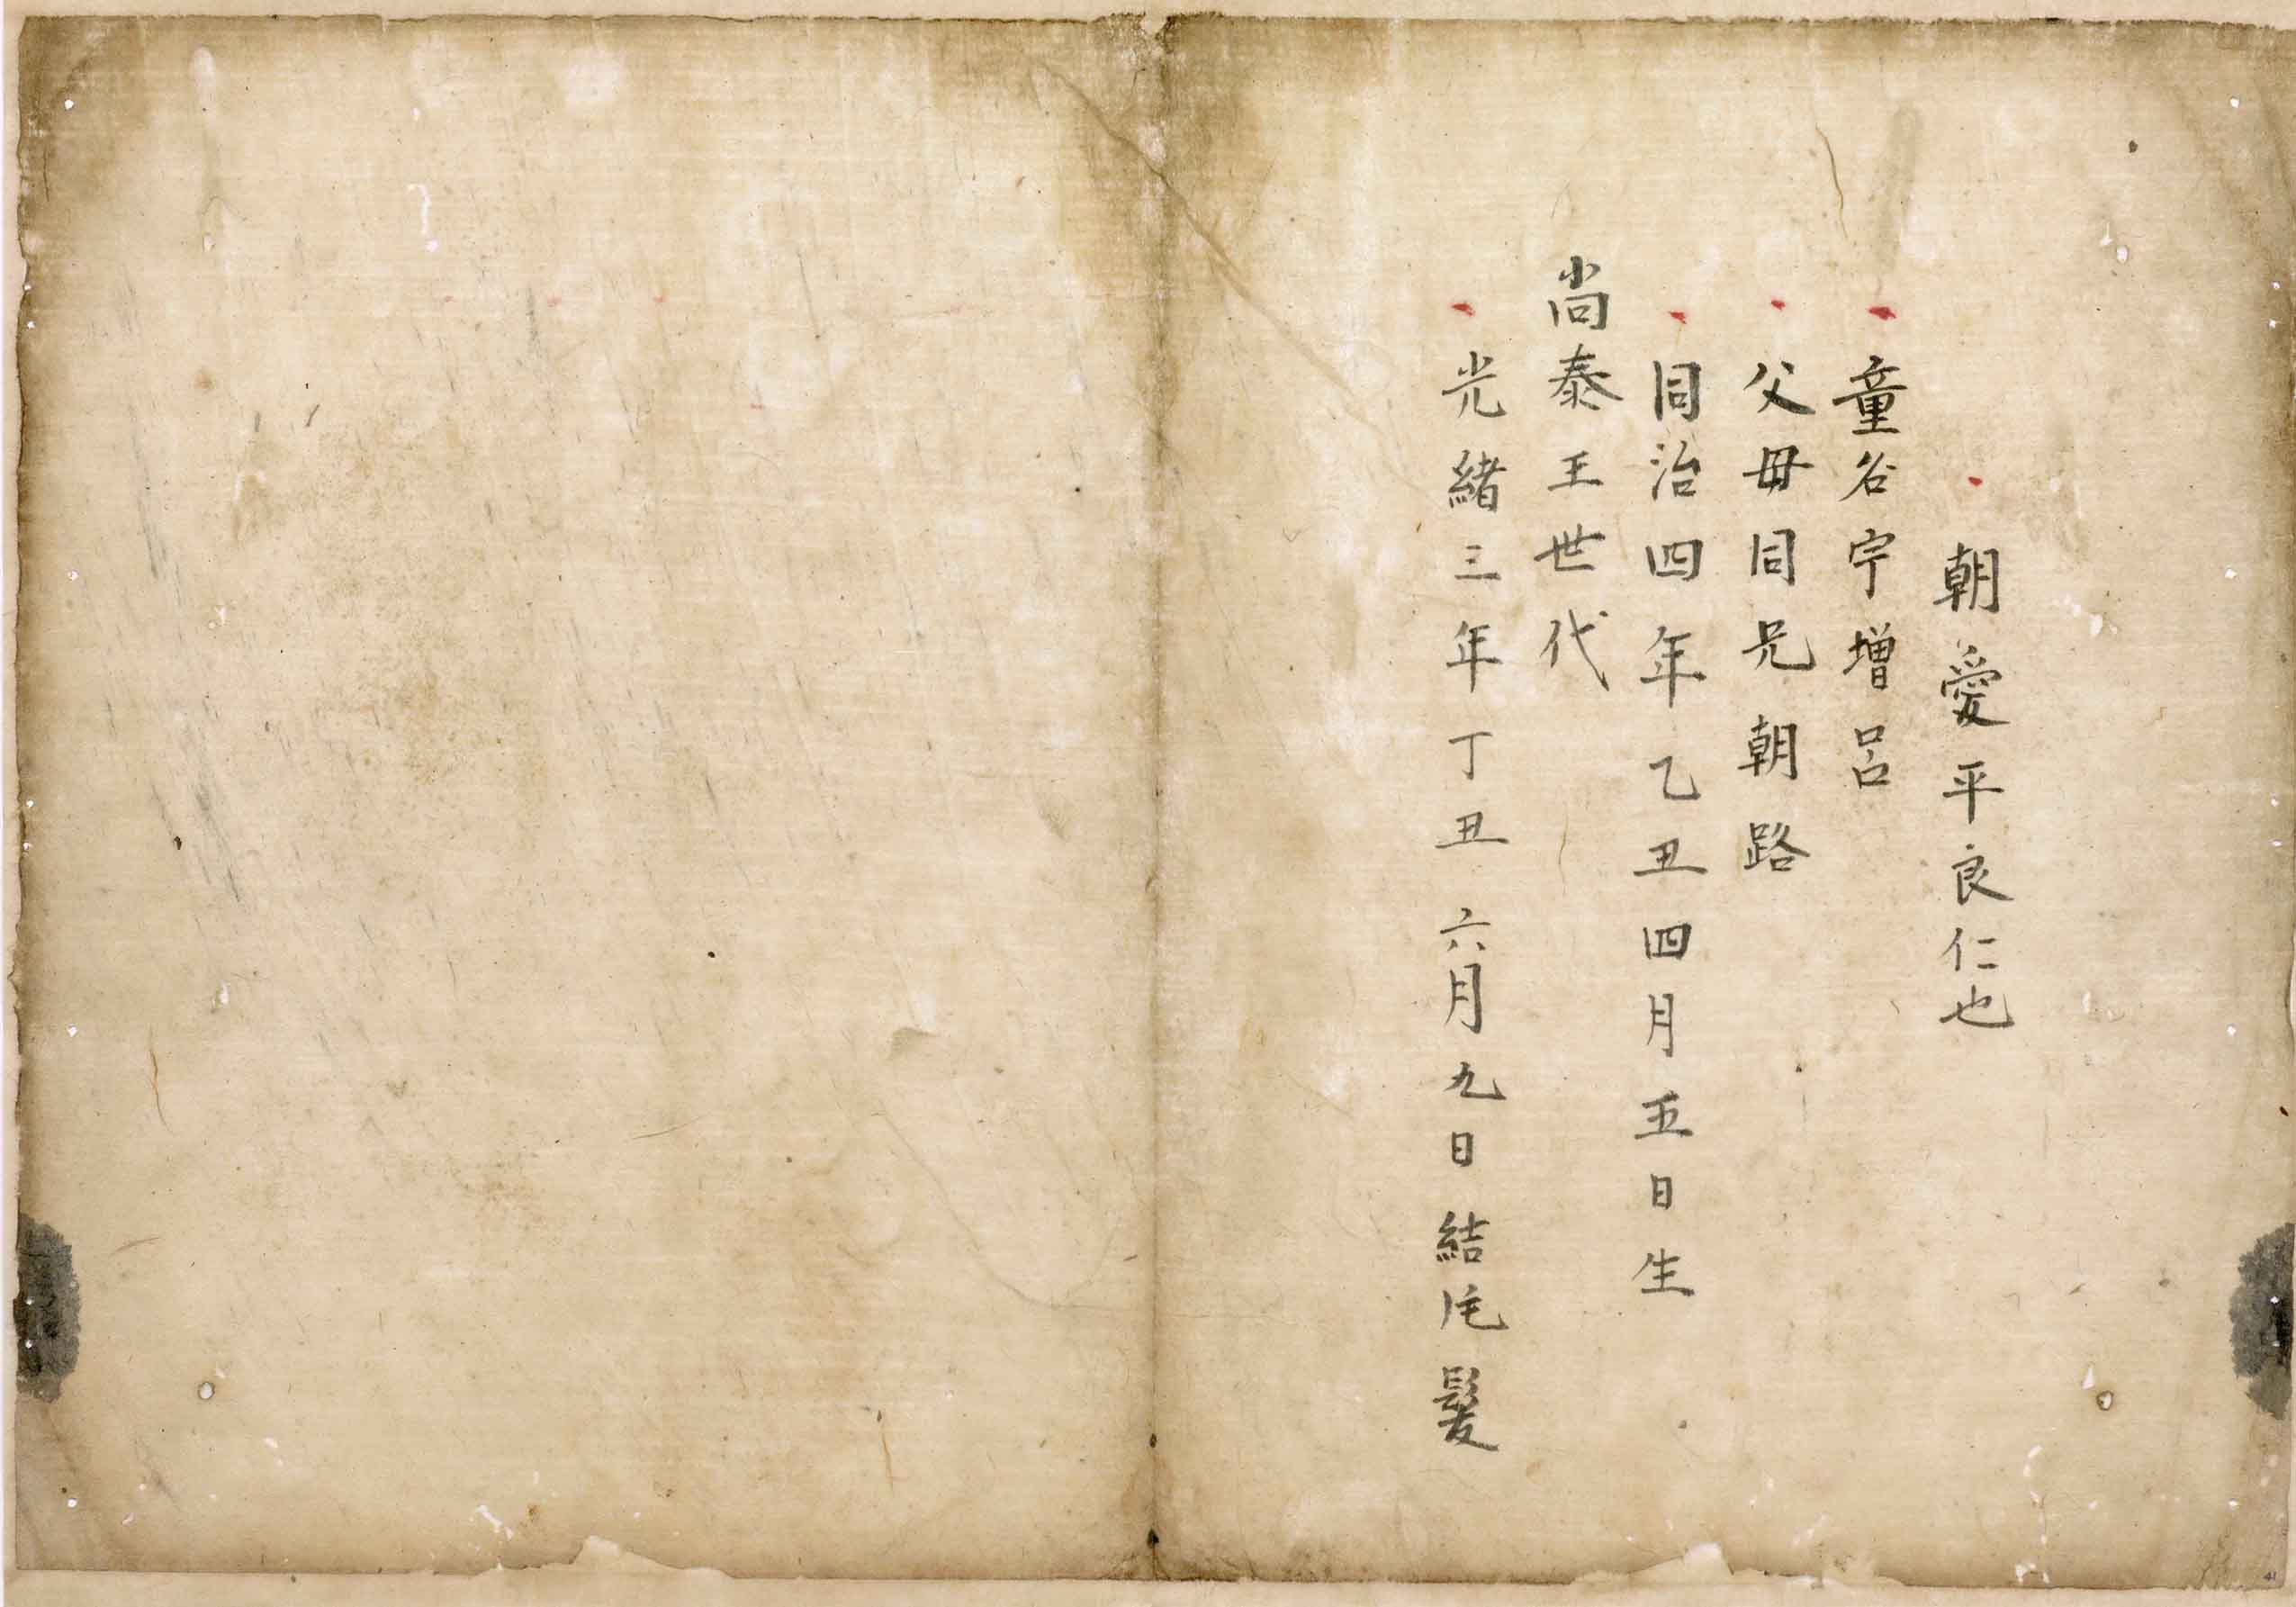 朝愛平良仁也
童名宇増呂
父母同兄朝路
同治四年乙丑四月五日生
尚泰王世代
光緒三年丁丑六月九日結髪